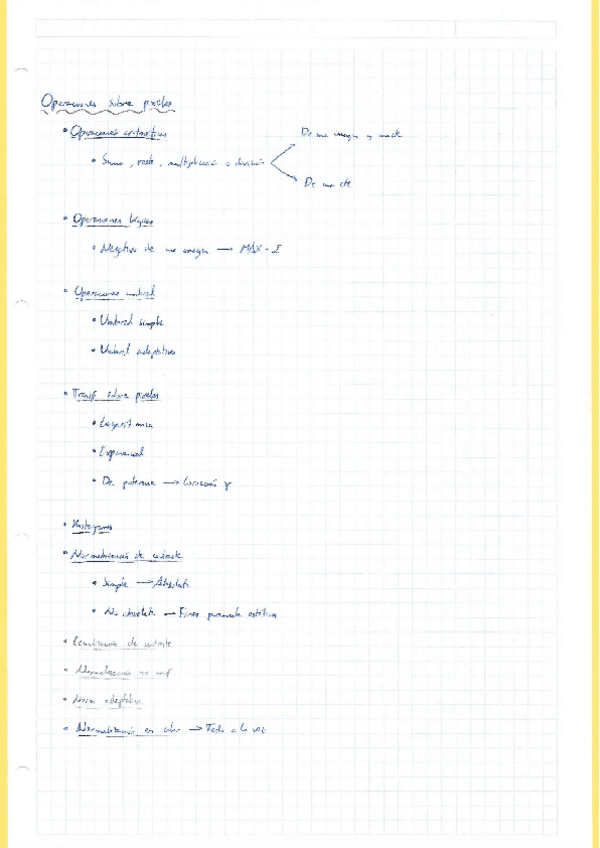 Operaciones sobre pixeles
• Operaciones aritmeticas
• Suma, resta, multiplicación o división
De una imagen y
De una cte
• Operaciones lógicas
• Negativo de una imagen → MÁX - I
• Operaciones umbral
• Umbral simple
• Umbral adaptativo
• Transf sobre pixeles
• Logaritmica
• Exponencial
• De potencia → Corrección γ
• Histograma
• Normalización de contraste
• Simple → Absoluta
• No absoluta → Fines puramente estéticos
• Ecualización de contraste
• Normalización no unif
• Norm adaptativa
• Normalización en color → Todo a la vez